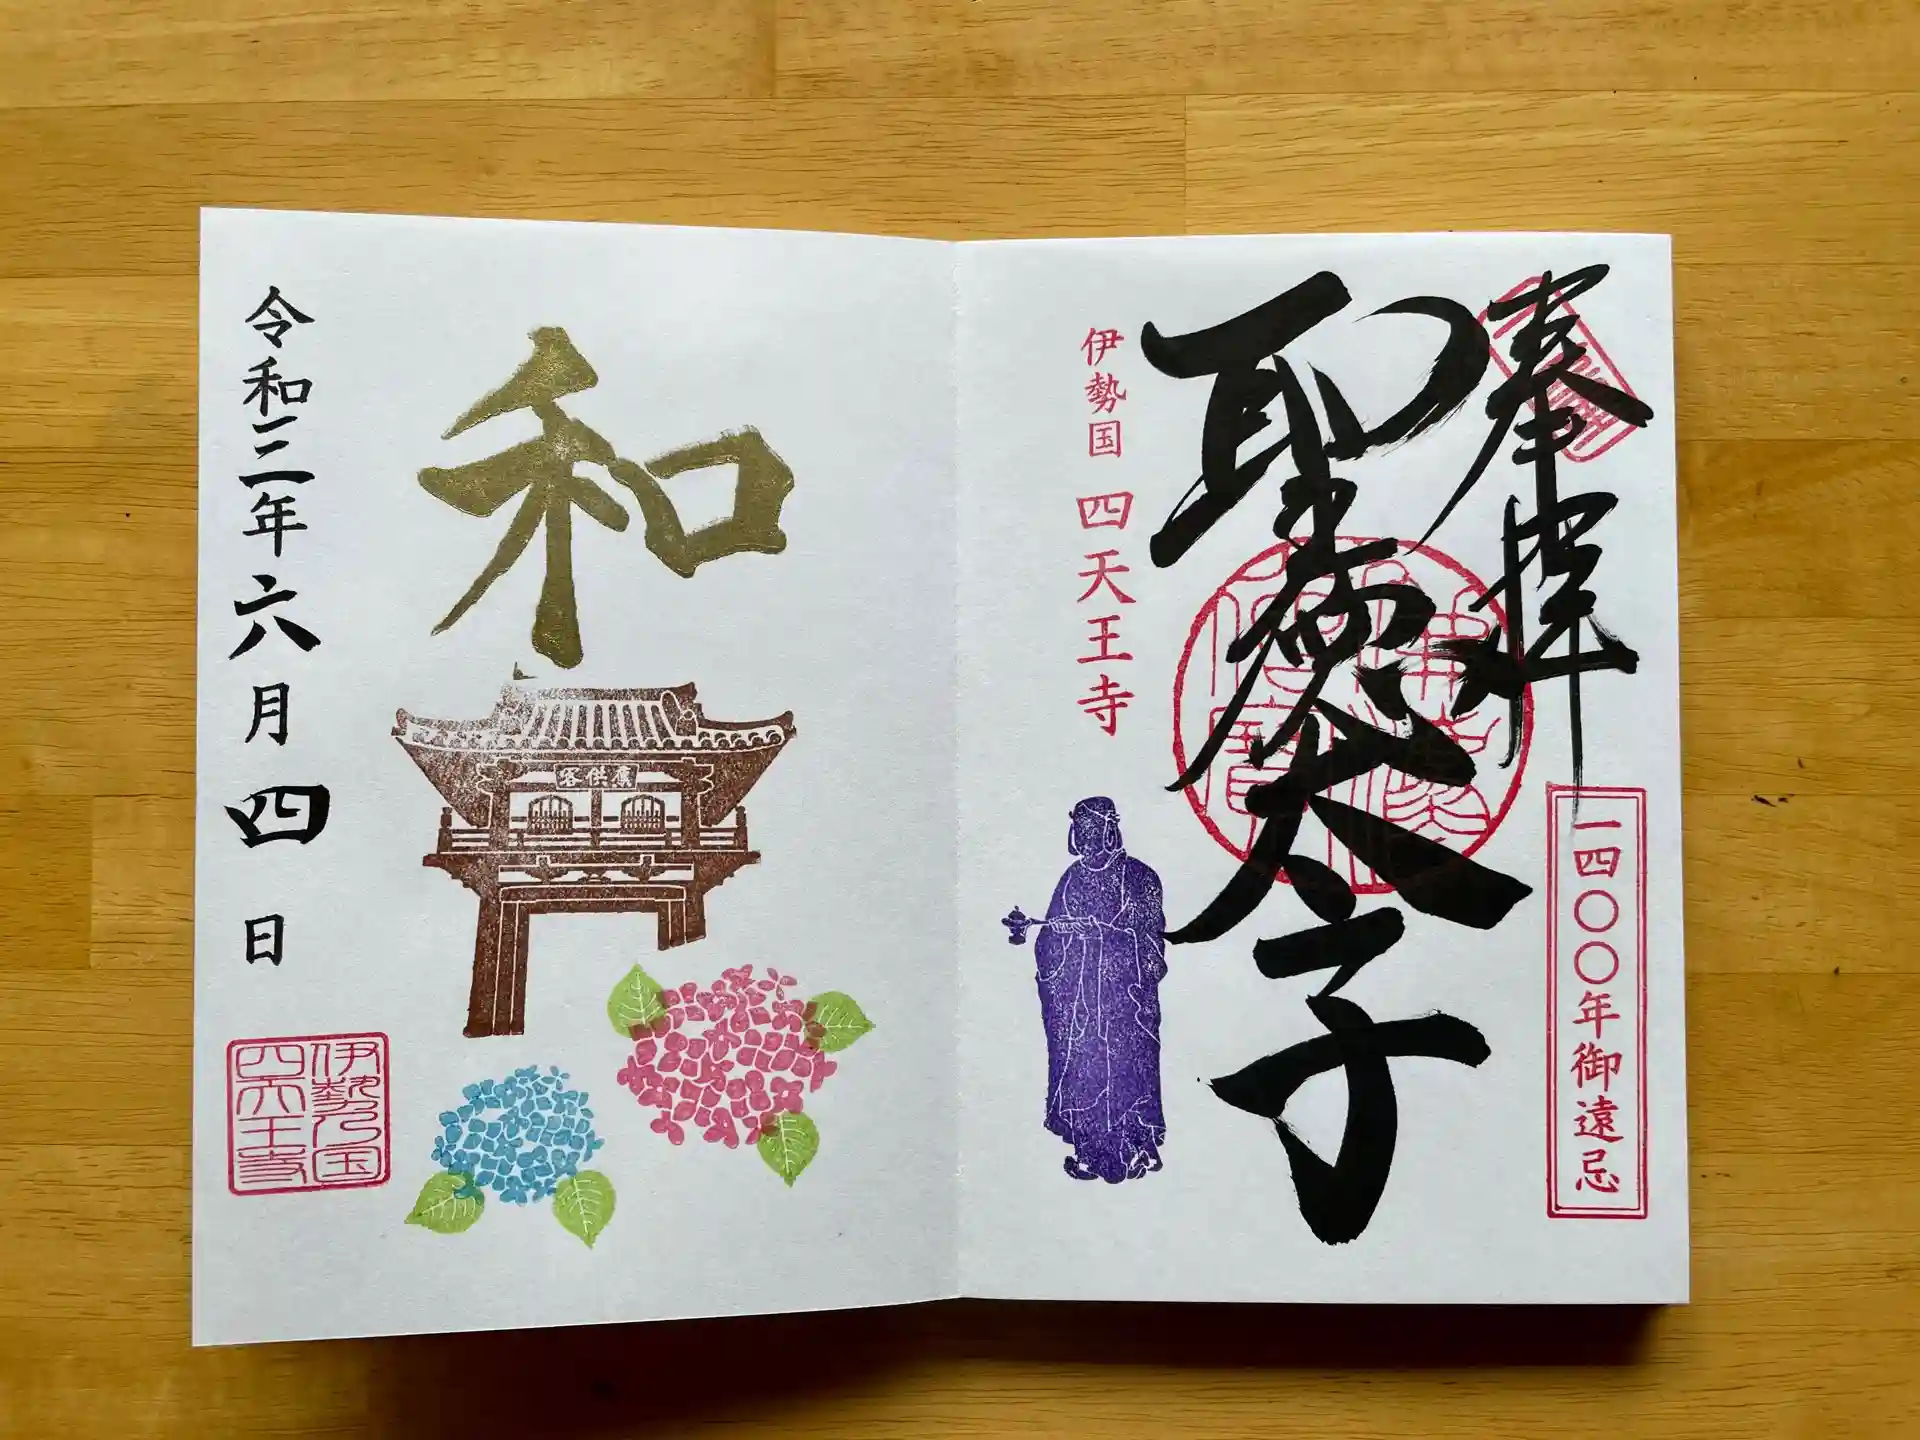 奉拝
一四〇〇年御遠忌
聖徳太子
伊勢国 四天王寺
和
令和三年六月四日
伊勢乃国
四天王寺